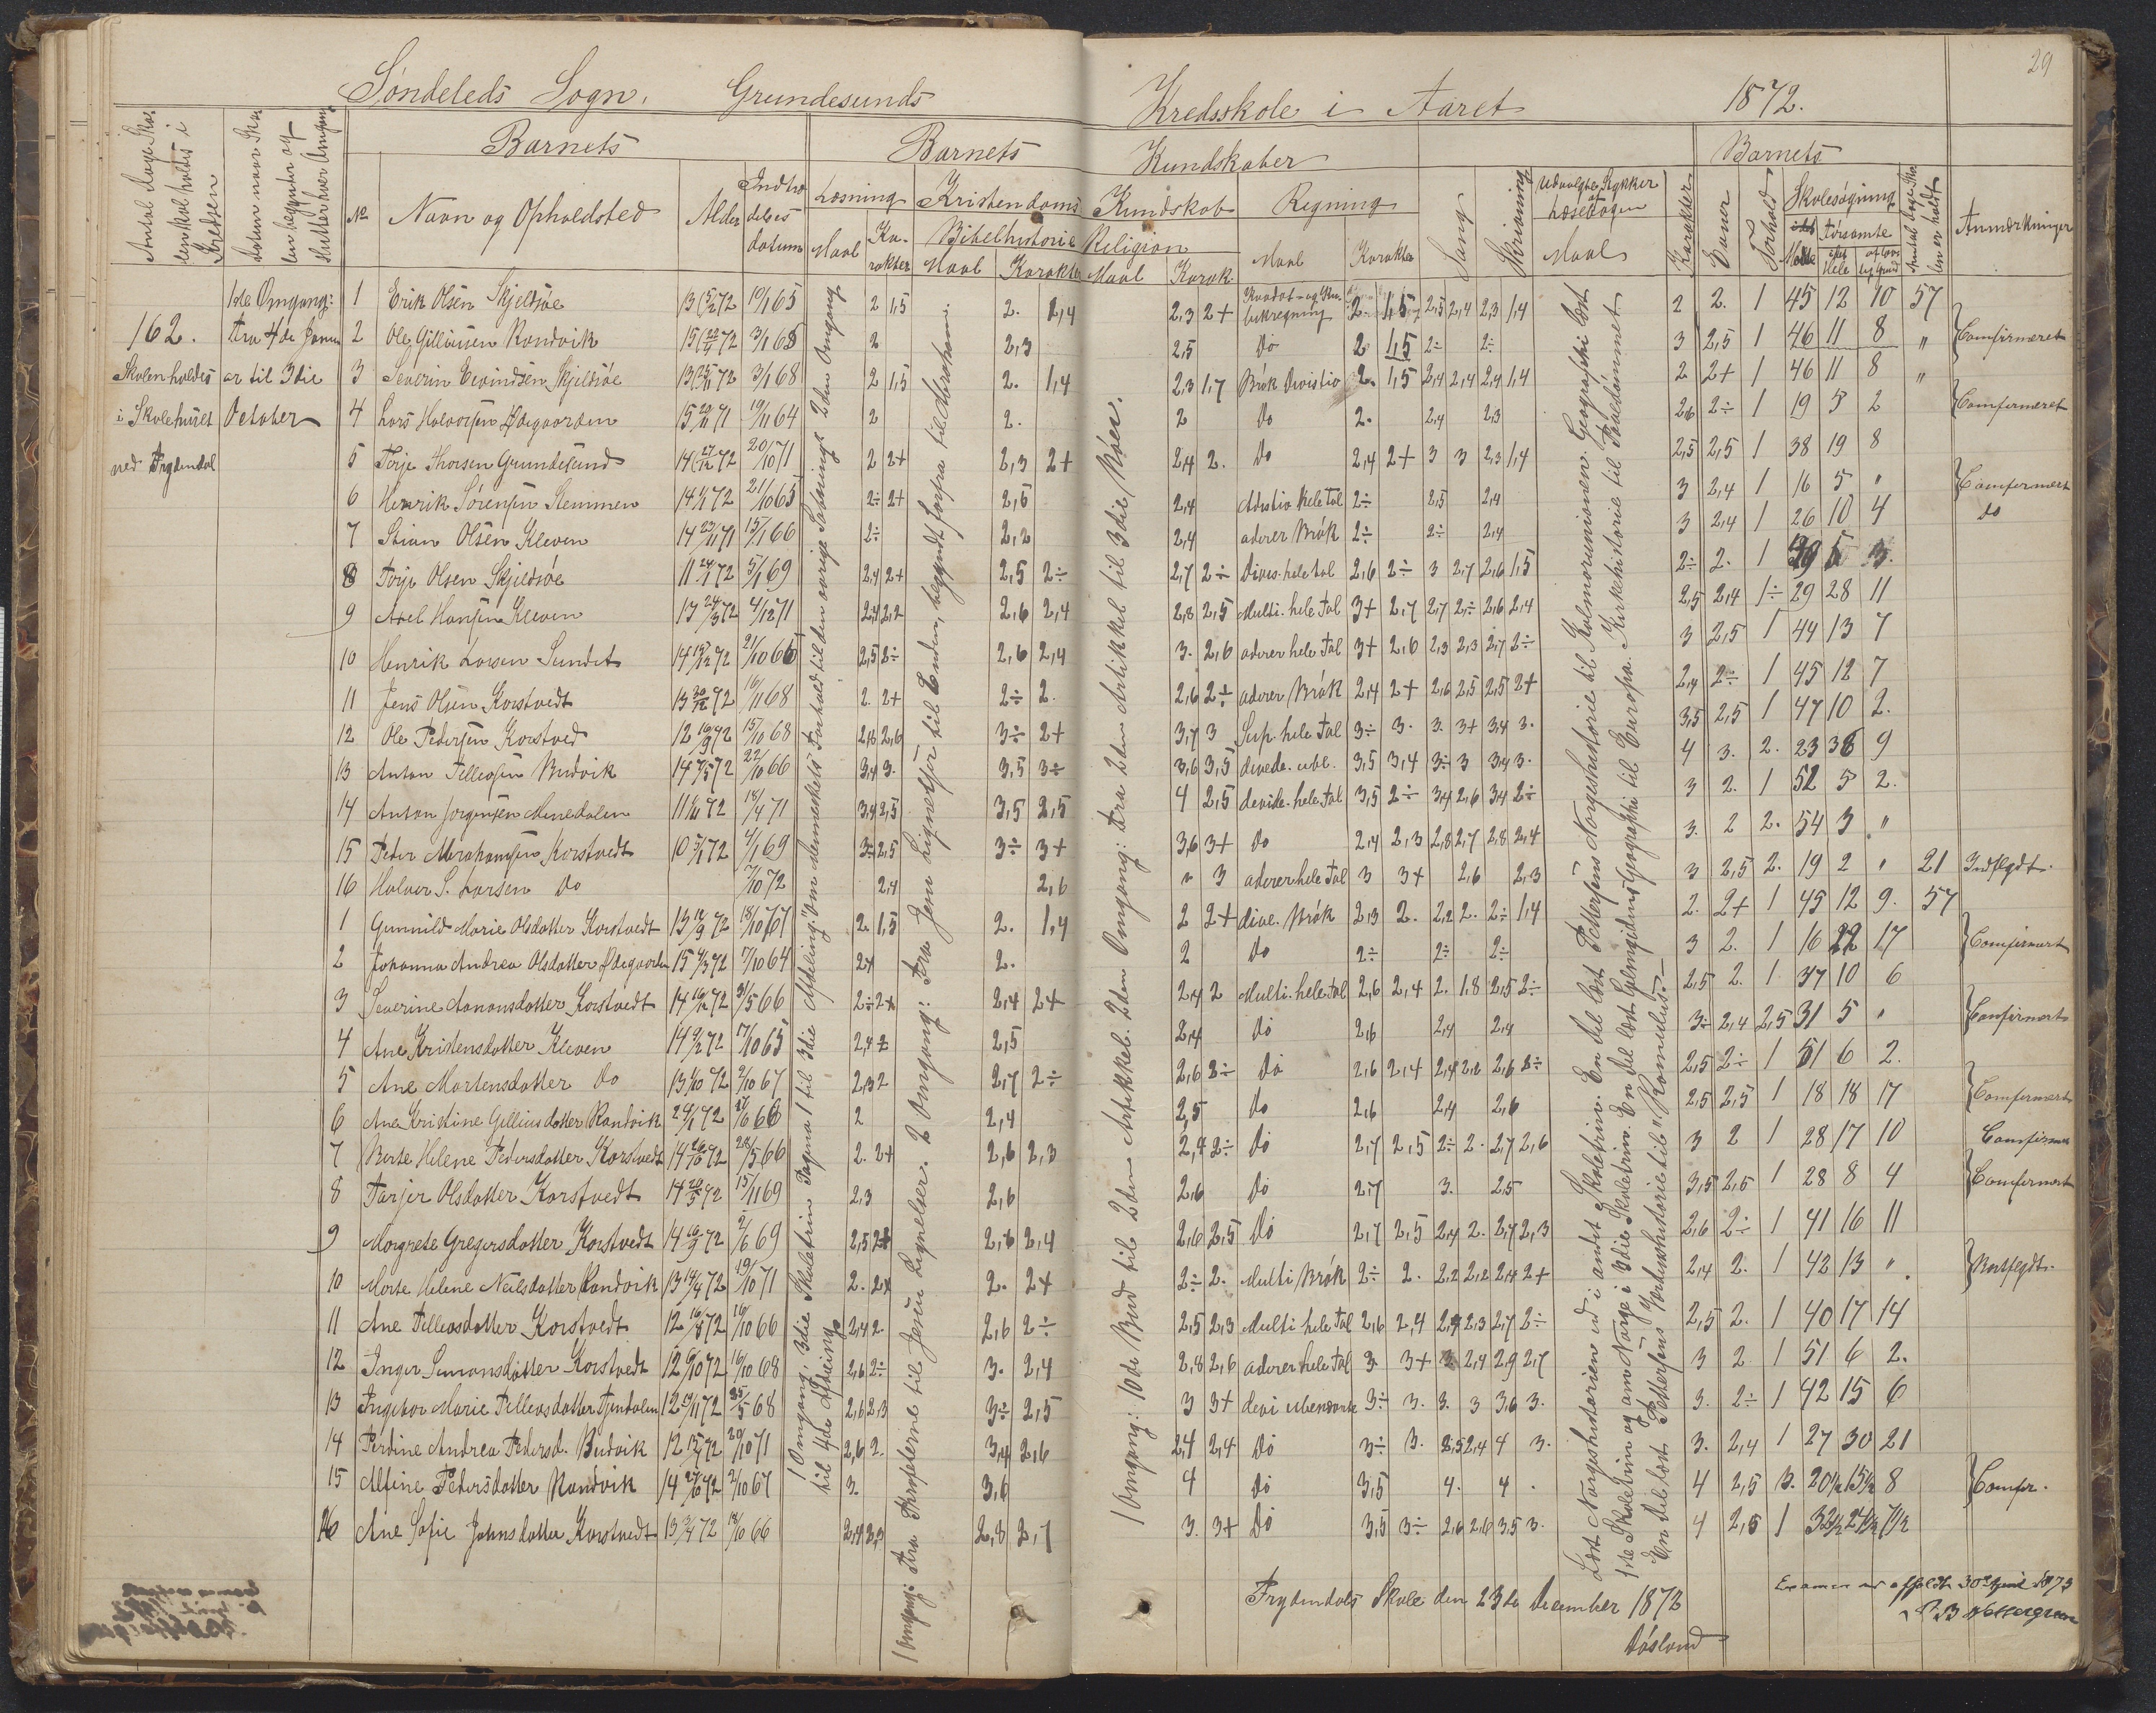 29
Søndeleds Sogn. Grundesunds Kredsskole i Aaret 1872.
Antal Dage Skolen skal holdes i Kredsen
Datum naar Skolen begynder og slutter hver Omgang
Barnets
Barnets Kundskaber
Barnets
No Navn og Opholdsted Alder Indtrædelses datum
Læsning Kristendoms Kundskab Regning Sang Skrivning Udvalgte Stykker af Læsebogen Karakter Evner Forhold Skolesøgning Anmærkninger
Maal Karakter Bibelhistorie Religion
Maal Karakter Maal Karak. Maal Karakter Maal
Mødte forsømte Hele af lovlig Grund Antal Dage Skolen er holdt
1ste Omgang:
162. fra 4de Janu
Skolen holdes ar til 3die
i Skolehuset October
ved Frydendal
1 Erik Olsen Skjeldsøe 13 72 10/1 65 2 1,5 2. 1,4 2,3 2+ 2. 1,5 2,5 2,4 2,3 1,4 2 2. 1 45 12 10 57
2 Ole Gilliusen Randvik 15 72 3/1 65 2 2,3 2,5 Do 2 1,5 2÷ 2÷ 3 2,5 1 46 11 8 " Comfirmeret
3 Severin Eevindsen Skjeldsøe 13 72 3/1 68 2 1,5 2. 1,4 2,3 1,7 Brøk Divistio 2. 1,5 2,4 2,4 2,4 1,4 2 2+ 1 46 11 8 "
4 Lars Halvorsen Ødegaarden 15 71 19/11 64 2 2. 2 Do 2. 2,4 2,3 2,6 2÷ 1 19 5 2 Comfirmeret
5 Terje Thorsen Grundesund 14 27/12 72 20/10 71 2 2+ 2,3 2+ 2,4 2. Do 2,4 2+ 3 3 2,3 1,4 2,5 2,5 1 38 19 8
6 Henrik Sørensen Stemmen 14 72 21/10 65 2÷ 2+ 2,5 2,4 Adistio hele Tal 2÷ 2,5 2,4 3 2,4 1 16 5 " Comfirmert
7 Stian Olsen Kleven 14 23/11 71 15/1 66 2÷ 2,2 2,4 aderer Brøk 2÷ 2÷ 2,4 3 2,4 1 26 10 4 do
8 Terje Olsen Skjeldsøe 11 24/1 72 5/1 69 2,4 2+ 2,5 2÷ 2,7 2÷ Divis. hele tal 2,6 2÷ 3 2,7 2,6 1,5 2÷ 2. 1 5 3.
9 Axel Hansen Kleven 13 24/3 72 4/12 71 2,4 2,2 2,6 2,4 2,8 2,5 Multi. hele Tal 3+ 2,7 2,7 2÷ 2,6 2,4 2,5 2,4 1÷ 29 28 11
10 Henrik Larsen Sundet 14 72 21/10 66 2,5 2÷ 2,6 2,4 3. 2,6 aderer hele Tal 3+ 2,6 2,3 2,3 2,7 2÷ 3 2,5 1 44 13 7
11 Jens Olsen Korstvedt 13 30/12 72 16/11 68 2. 2+ 2÷ 2. 2,6 2÷ aderer Brøk 2,4 2+ 2,6 2,5 2,5 2+ 2,4 2÷ 1 45 12 7
12 Ole Pedersen Korstved 12 16/9 72 15/10 68 2,6 2,6 3÷ 2+ 3,7 3 Sup. hele Tal 3÷ 3. 3. 3+ 3,4 3. 3,5 2,5 1 47 10 2.
13 Anton Tellefsen Budvik 14 7/5 72 22/10 66 3,4 3. 3,5 3÷ 3,6 3,5 divede. ube. 3,5 3,4 3÷ 3 3,4 3. 4 3. 2. 23 36 9
14 Anton Jorgensen Minedalen 11 72 18/4 71 3,4 2,5 3,5 2,5 4 2,5 devide. hele Tal 3,5 2÷ 3,4 2,6 3,4 2÷ 3 2. 1 52 5 2.
15 Peder Abrahamsen Korstvedt 10 5/1 72 4/1 69 3÷ 2,5 3÷ 3+ 3,6 3+ Do 2,4 2,3 2,8 2,7 2,8 2,4 3. 2 2. 54 3 "
16 Halvor S. Larsen Do 7/10 72 2,4 2,6 " 3 aderer hele Tal 3 3+ 2,6 2,3 3 2,5 2. 19 2 " 21 Indflydt.
1 Gunnild Marie Olsdatter Korstvedt 13 72 18/10 67 2. 1,5 2. 1,4 2 2+ dive. Brøk 2,3 2. 2,2 2. 2÷ 1,4 2. 2+ 1 45 12 9. 57
2 Johanna Andrea Olsdatter Ødegaarden 15 4/3 72 7/10 64 2+ 2. 2 Do 2÷ 2÷ 2÷ 3 2. 1 16 22 17 Comfirmert
3 Severine Aanonsdatter Korstvedt 14 16/12 72 31/5 66 2÷ 2+ 2,4 2+ 2,4 2 Multi. hele Tal 2,6 2,4 2. 1.8 2,5 2÷ 2,5 2. 1 37 10 6
4 Ane Kristensdatter Kleven 14 72 17/10 65 2,4 2 2,5 2,4 Do 2,6 2,4 2,4 3÷ 2,4 2,5 31 5 " Confirmert
5 Ane Mortensdatter Do 13 1/10 72 2/10 67 2,3 2 2,7 2÷ 2,6 2÷ Do 2,6 2,4 2,4 2,2 2,6 2÷ 2,5 2÷ 1 51 6 2.
6 Ane Kristine Gilliusdatter Randvik 24/1 72 66 2 2,4 2,5 Do 2,6 2,4 2,6 2,5 2,5 1 18 18 17 Comfirmert
7 Berte Helene Pedersdatter Korstvedt 14 26/10 72 28/5 66 2. 2+ 2,6 2,3 2,4 2÷ Do 2,7 2,5 2÷ 2. 2,7 2,6 3 2 1 28 17 10
8 Tarjer Olsdatter Korstvedt 14 20/3 72 15/11 69 2,3 2,6 2,6 Do 2,7 3. 2,5 3,5 2,5 1 28 8 4 Comfirmert
9 Margrete Gregersdatter Korstvedt 14 72 2/6 69 2,5 2+ 2,6 2,4 2,6 2,5 Do 2,7 2,5 2,4 2. 2,7 2,3 2,6 2÷ 1 41 16 11
10 Marte Helene Neilsdatter Randvik 13 14/4 72 19/10 71 2. 2+ 2. 2+ 2÷ 2. Multi Brøk 2÷ 2. 2,2 2,2 2,4 2+ 2,4 2. 1 42 13 " Bortflydt.
11 Ane Tellevsdatter Korstvedt 12 16/8 72 16/10 66 2,4 2 2,6 2÷ 2,5 2,3 Multi hele Tal 2,6 2,4 2,4 2,3 2,7 2÷ 2,5 2. 1 40 17 14
12 Inger Simonsdatter Korstvedt 12 6/10 72 16/10 68 2,6 2÷ 3. 2,4 2,8 2,6 aderer hele Tal 3 3+ 3 2,4 2,9 2,7 3 2 1 51 6 2.
13 Ingebor Marie Tellevsdatter Fjendalen 12 72 25/5 68 2,6 2,3 3÷ 2,5 3 3+ devi ubenævnte 3÷ 3. 3. 3 3,6 3. 3. 2÷ 1 42 15 6
14 Perdine Andrea Pedersd. Budvik 12 72 20/10 71 2,6 2. 3,4 2,6 2,4 2,4 Do 3÷ 3. 2,5 2,4 4 3. 3. 2,4 1 27 30 21
15 Alfine Pedersdatter Randvik 14 27/10 72 2/10 67 3. 3,6 4 Do 3,5 4. 4. 4 2,5 3. 20½ 15½ 8 Comfir.
16 Ane Sofie Johnsdatter Korstvedt 13 2/4 72 18/10 66 2,4 2,3 2,8 2,7 3. 3+ Do 3,5 3÷ 2,6 2,6 3,5 3. 4 2,5 1 32½ 24½ 7½
1 Omgang: 3die Skoletrin Pagina 1 til 3die Afdeling: "Om Menneskets Forhold til den øvrige Skabning" 2den Omgang
til 4de Afdeling
1 Omgang: Fra Profeterne til Jesu Lignelser. 2 Omgang: Fra Jesu Lignelser til Enden, begyndt forfra til Abraham.
1 Omgang: 10de Bud til 2den Artikkel. 2den Omgang: Fra 2den Artikkel til 3die
Læst Norgeshistorien ud i andet Skoletrin. En del læst Pettersens Norgeshistorie til Kalmarunionen. Geografi læst
1ste Skoletrin og om Norge i 3die Skoletrin. En del læst Geografi til Europa. Kirkehistorie til Pavedømmet
En del læst Pettersens Verdenshistorie til "Romulus".
Frydendals Skole den 23de December 1872
Døsland
Examen er afholdt 30 1873